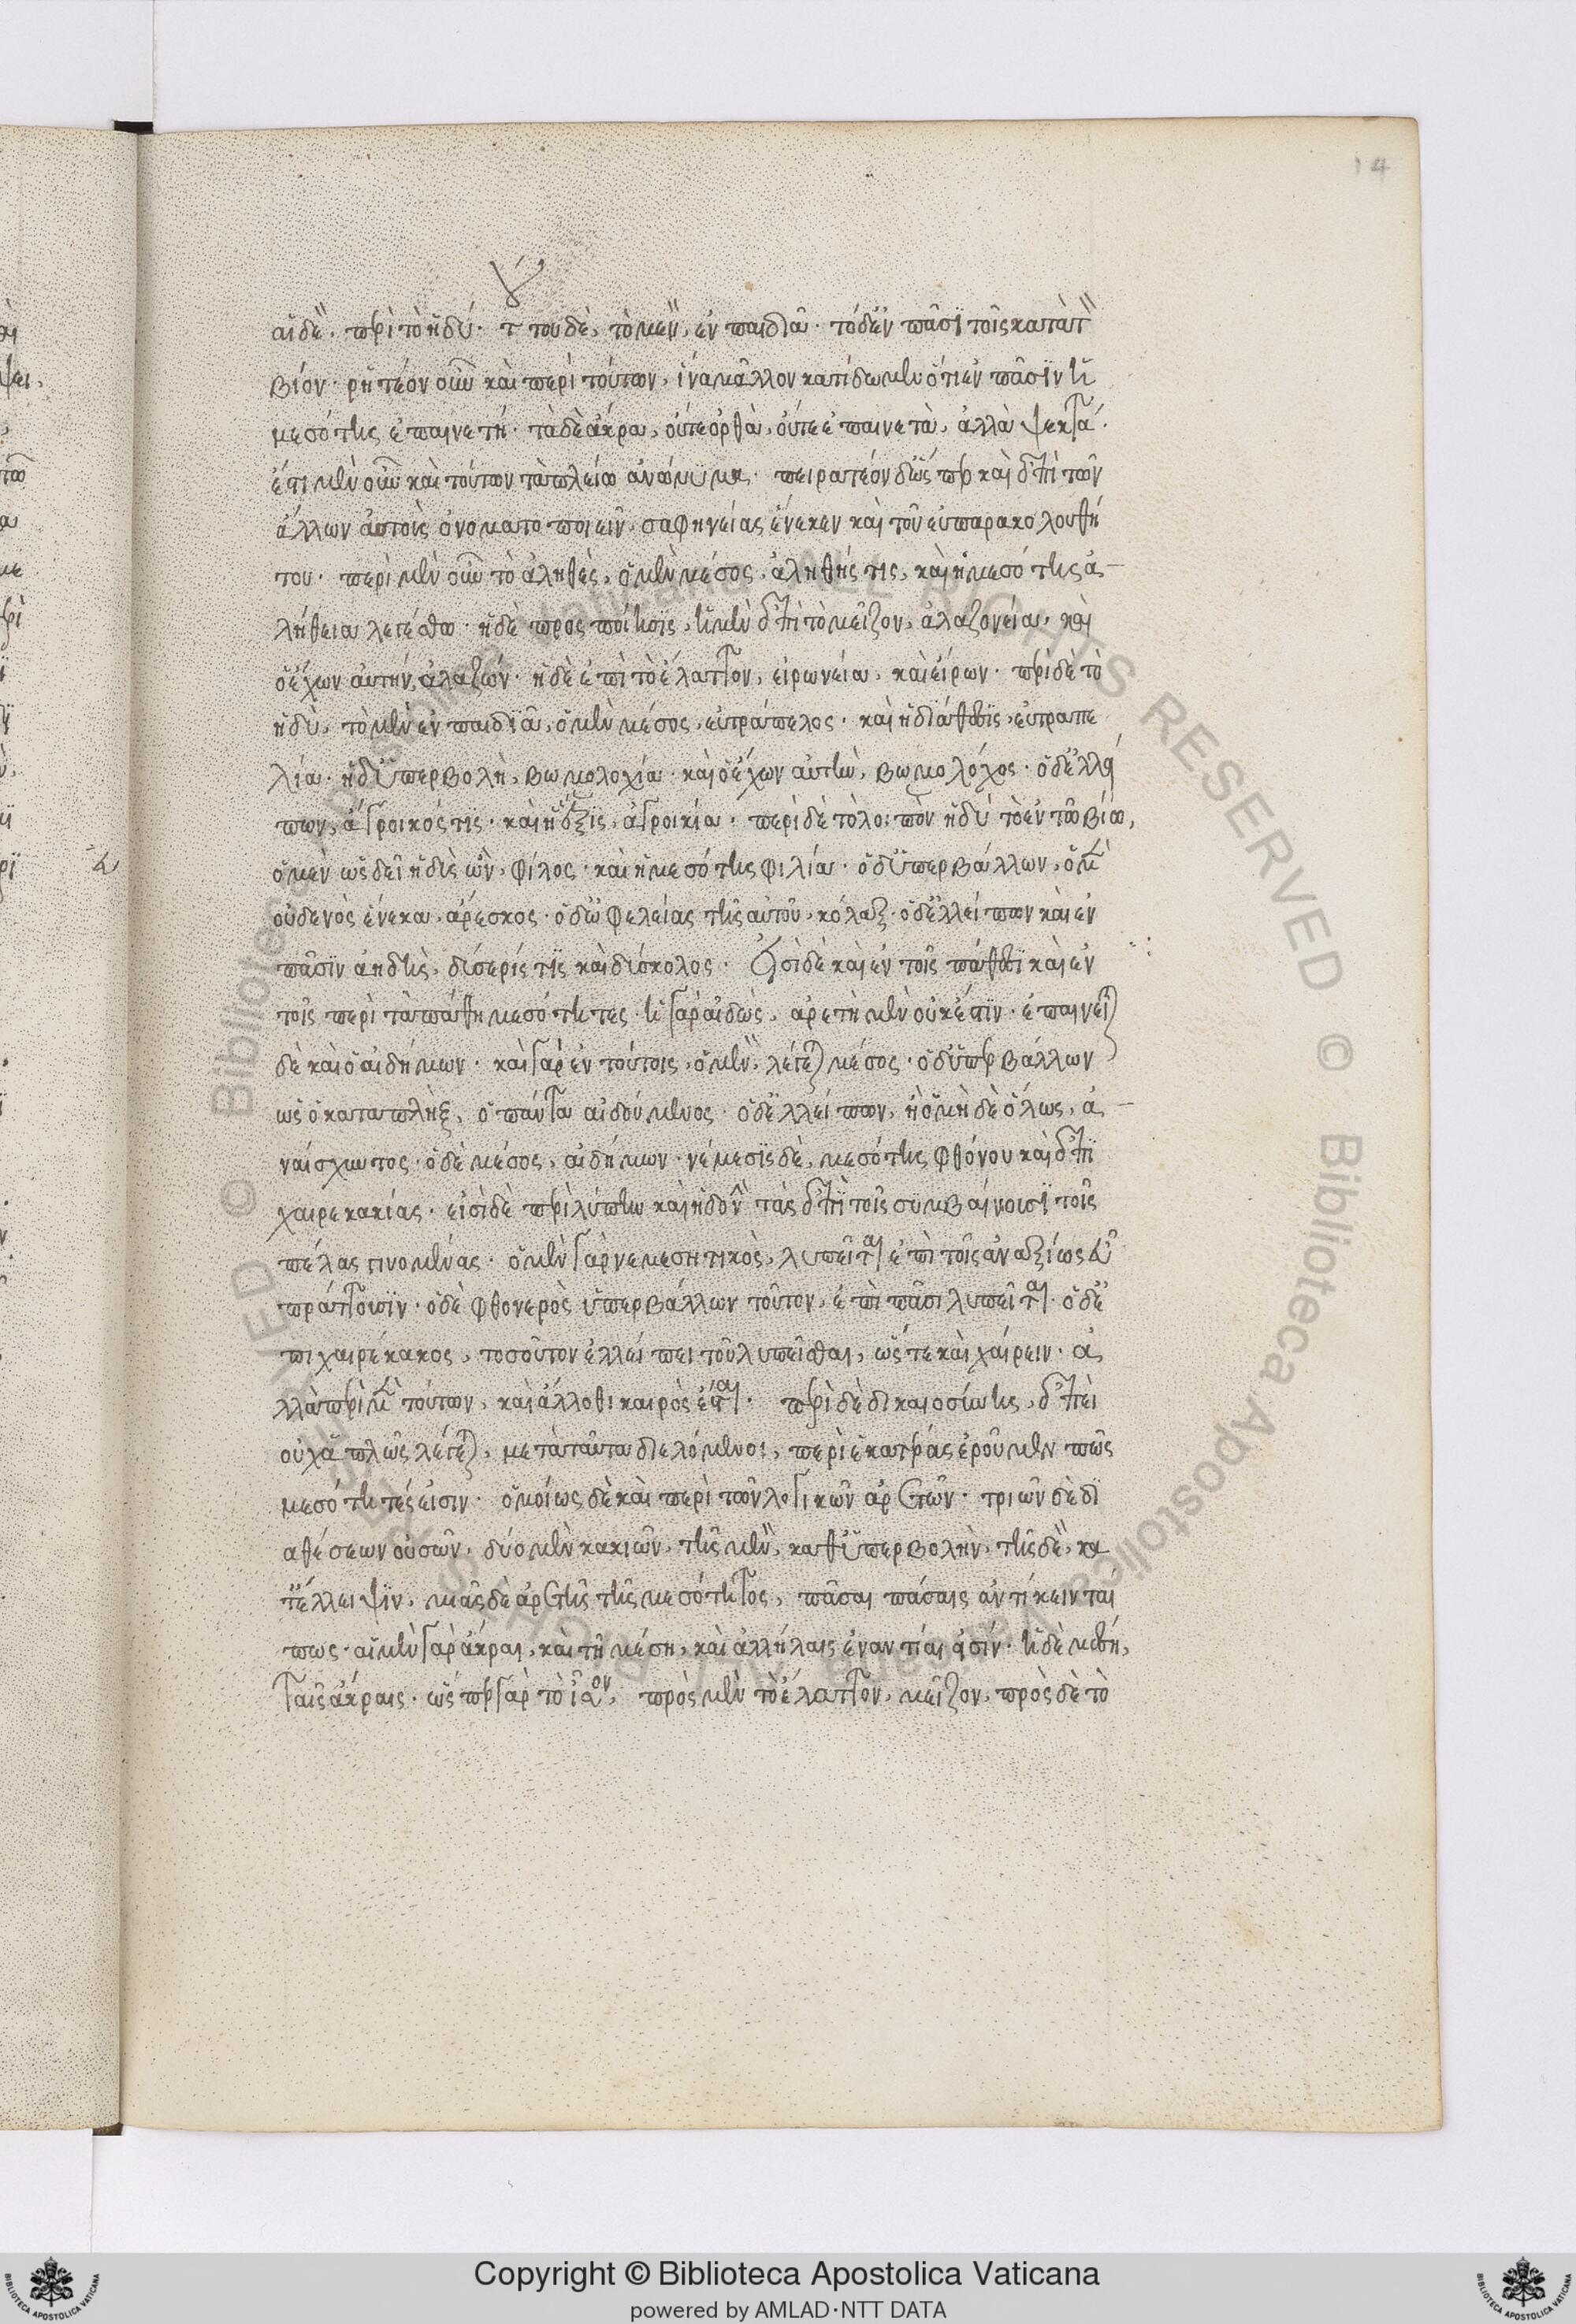 14
αἱ δὲ, περὶ τὸ ἡδύ· τούτου δὲ, τὸ μὲν, ἐν παιδιᾶ· τὸ δ' ἐν πᾶσι τοῖς κατὰ τ
βίον· ῥητέον οὖν καὶ περὶ τούτων, ἵνα μᾶλλον κατίδωμεν ὅτι ἐν πᾶσιν ἡ
μεσότης ἐπαινετή· τὰ δὲ ἄκρα, οὔτε ὀρθὰ, οὔτε ἐπαινετὰ, ἀλλὰ ψεκτά·
ἔτι μὲν οὖν καὶ τούτων τὰ πλείω ἀνώνυμα· πειρατέον δ' ὥσπερ καὶ ἐπὶ τῶν
ἄλλων αὐτοὺς ὀνοματοποιεῖν, σαφηνείας ἕνεκεν καὶ τοῦ εὐπαρακολουθή
του· περὶ μὲν οὖν τὸ ἀληθὲς, ὁ μὲν μέσος, ἀληθής τις, καὶ ἡ μεσότης ἀ
λήθεια λεγέσθω· ἡ δὲ προσποίησις, ἡ μὲν ἐπὶ τὸ μεῖζον, ἀλαζονεία, καὶ
ὁ ἔχων αὐτὴν, ἀλαζών· ἡ δὲ ἐπὶ τὸ ἔλαττον, εἰρωνεία, καὶ εἴρων· περὶ δὲ τὸ
ἡδὺ, τὸ μὲν ἐν παιδιᾶ, ὁ μὲν μέσος, εὐτράπελος· καὶ ἡ διάθεσις, εὐτραπε
λία· ἡ δ' ὑπερβολὴ, βωμολοχία· καὶ ὁ ἔχων αὐτὴν, βωμολόχος· ὁ δ' ἐλλεί
πων, ἄγροικός τις· καὶ ἡ ἕξις, ἀγροικία· περὶ δὲ τὸ λοιπὸν ἡδύ τὸ ἐν τῶ βίω,
ὁ μὲν ὡς δεῖ ἡδὺς ὢν, φίλος· καὶ ἡ μεσότης φιλία· ὁ δ' ὑπερβάλλων, εἰ μὲν
οὐδενὸς ἕνεκα, ἄρεσκος· ὁ δ' ὠφελείας τῆς αὑτοῦ, κόλαξ· ὁ δ' ἐλλείπων καὶ ἐν
πᾶσιν ἀηδὴς, δύσερίς τις καὶ δύσκολος· εἰσὶ δὲ καὶ ἐν τοῖς πάθεσι καὶ ἐν
τοῖς περὶ τὰ πάθη μεσότητες· ἡ γὰρ αἰδὼς, ἀρετὴ μὲν οὐκ ἔστιν· ἐπαινεῖται
δὲ καὶ ὁ αἰδήμων· καὶ γὰρ ἐν τούτοις, ὁ μὲν, λέγεται μέσος· ὁ δ' ὑπερβάλλων
ὡς ὁ καταπλὴξ, ὁ πάντα αἰδούμενος· ὁ δ' ἐλλείπων, ἢ ὁ μὴ δὲ ὅλως, ἀ
ναίσχυντος· ὁ δὲ μέσος, αἰδήμων· νέμεσις δὲ, μεσότης φθόνου καὶ ἐπι
χαιρεκακίας· εἰσὶ δὲ περὶ λύπην καὶ ἡδονὴν τὰς ἐπὶ τοῖς συμβαίνουσι τοῖς
πέλας γινομένας· ὁ μὲν γὰρ νεμεσητικὸς, λυπεῖται ἐπὶ τοῖς ἀναξίως εὖ
πράττουσιν· ὁ δὲ φθονερὸς ὑπερβάλλων τοῦτον, ἐπὶ πᾶσι λυπεῖται· ὁ δ' ἐ
πιχαιρέκακος, τοσοῦτον ἐλλείπει τοῦ λυπεῖσθαι, ὥστε καὶ χαίρειν· ἀ
λλὰ περὶ μὲν τούτων, καὶ ἄλλοθι καιρὸς ἔσται· περὶ δὲ δικαιοσύνης, ἐπεὶ
οὐχ ἁπλῶς λέγεται, μετὰ ταῦτα διελόμενοι, περὶ ἑκατέρας ἐροῦμεν πῶς
μεσότητές εἰσιν· ὁμοίως δὲ καὶ περὶ τῶν λογικῶν ἀρετῶν· τριῶν δὲ δι
αθέσεων οὐσῶν, δύο μὲν κακιῶν, τῆς μὲν, καθ' ὑπερβολὴν, τῆς δὲ, κα
τ' ἔλλειψιν, μιᾶς δὲ ἀρετῆς τῆς μεσότητος, πᾶσαι πάσαις ἀντίκεινταί
πως· αἱ μὲν γὰρ ἄκραι, καὶ τῆ μέση, καὶ ἀλλήλαις ἐναντίαι εἰσίν· ἡ δὲ μέση,
ταῖς ἄκραις· ὥσπερ γὰρ τὸ ἴσον, πρὸς μὲν τὸ ἔλαττον, μεῖζον, πρὸς δὲ τὸ
Copyright © Biblioteca Apostolica Vaticana
powered by AMLAD·NTT DATA